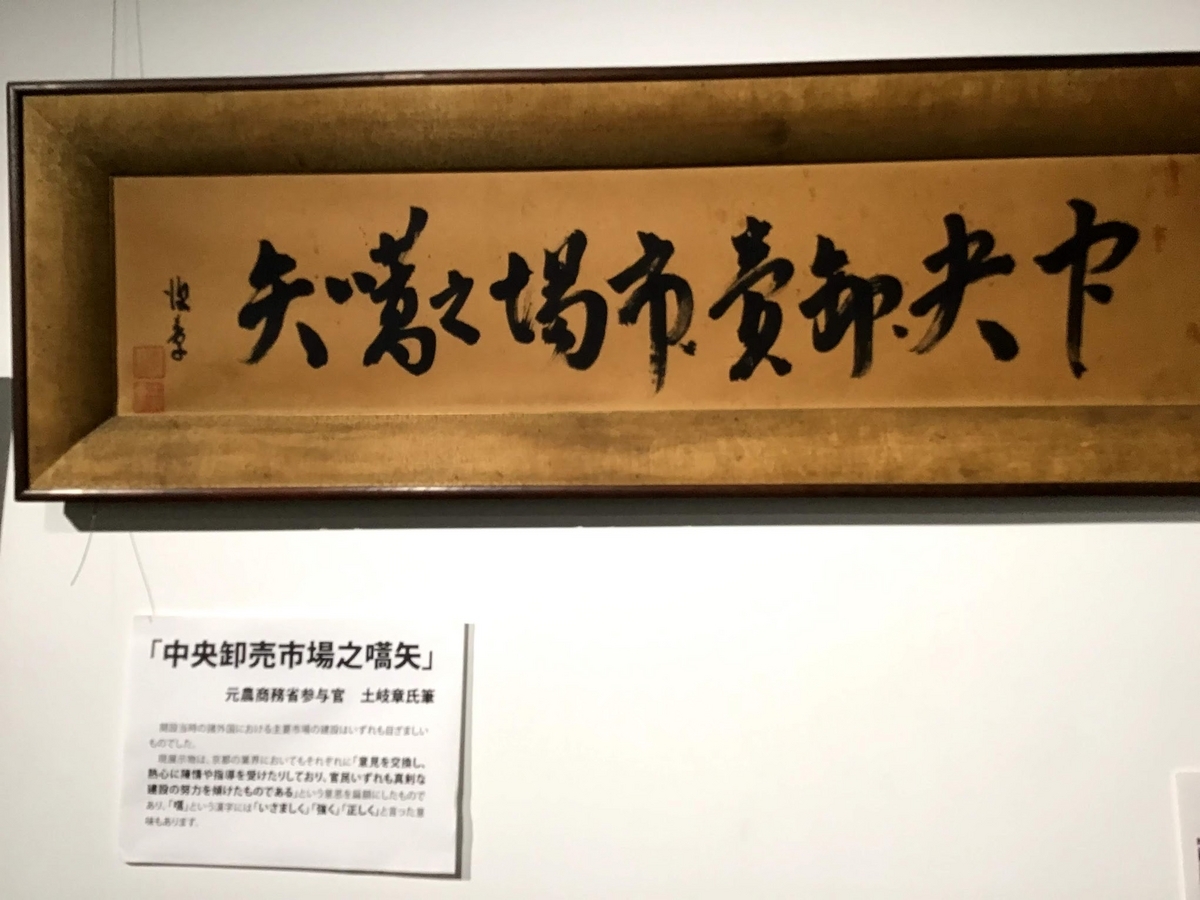 中央卸賣市場之嚆矢
「中央卸売市場之嚆矢」
元農商務省参与官　土岐章氏筆
開設当時の諸外国における主要市場の建設はいずれも目ざましい
ものでした。
現展示物は、京都の業界においてもそれぞれに「意見を交換し、
熱心に陳情や指導を受けたりしており、官民いずれも真剣な
建設の努力を傾けたものである」という意思を扁額にしたもので
あり、「嚆」という漢字には「いさましく」「強く」「正しく」と言った意
味もあります。